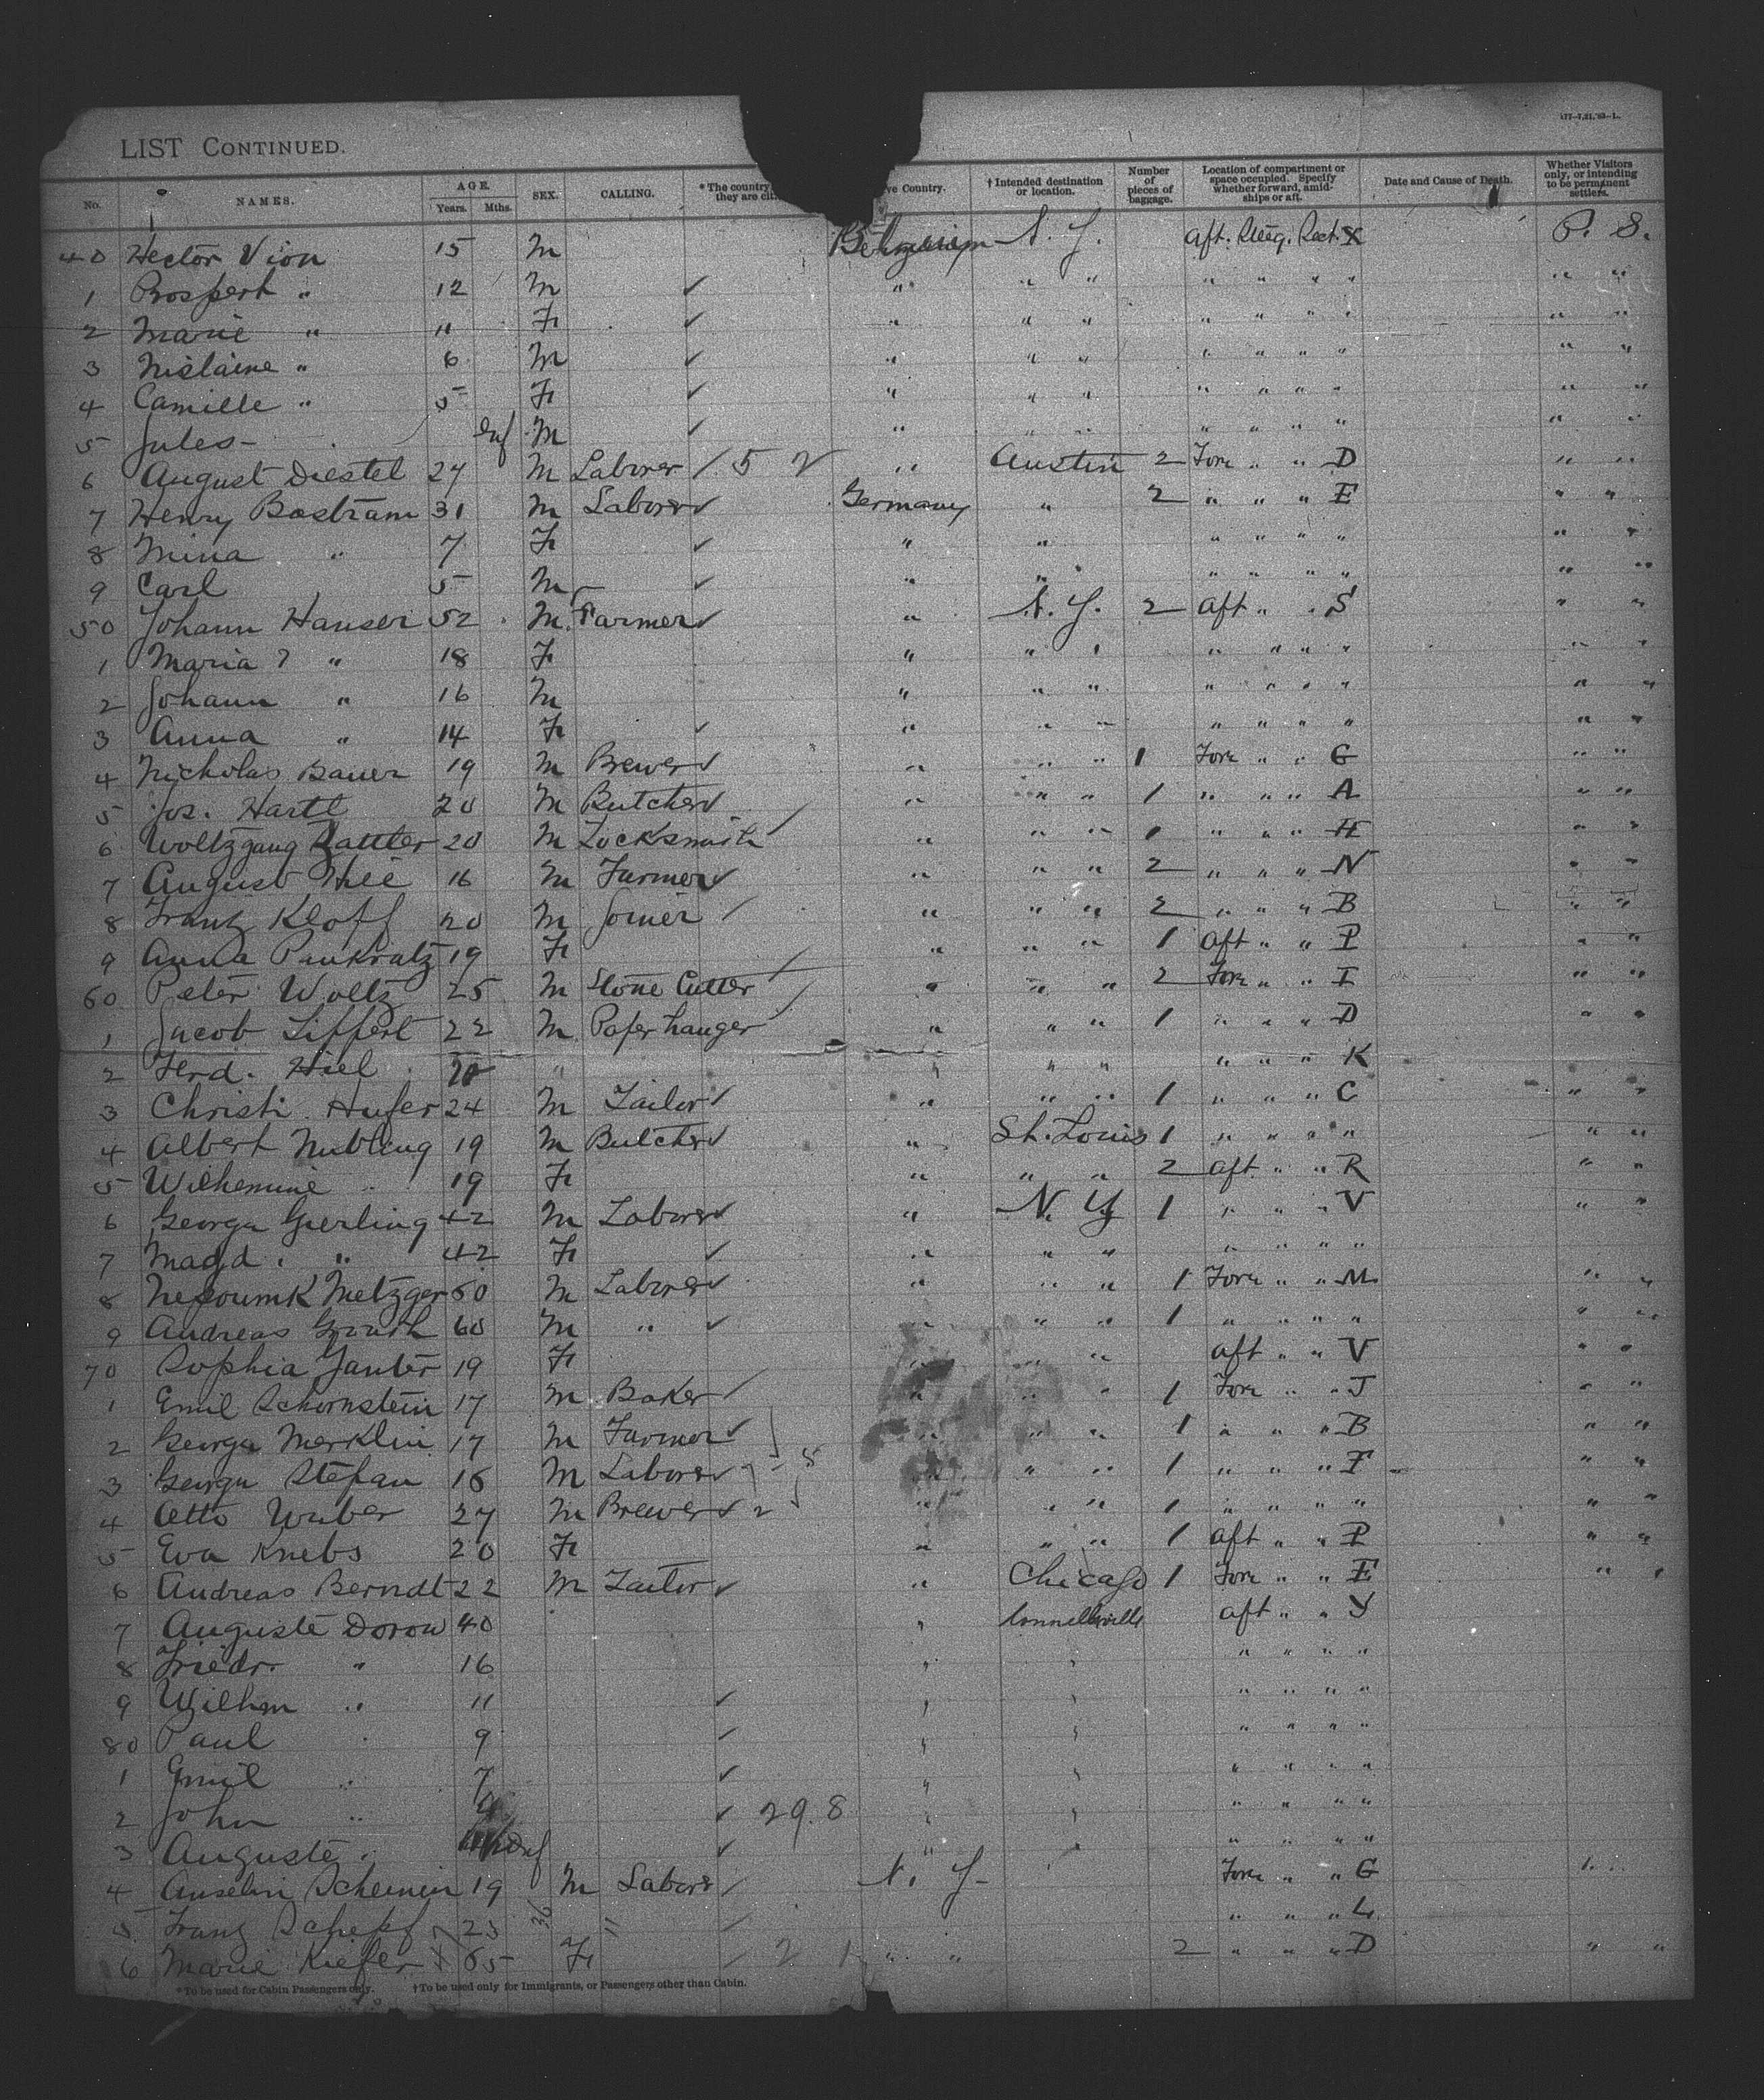 177-7,21,'93-1.
LIST CONTINUED.
No. NAMES. AGE. Years. Mths. SEX. CALLING. * The country they are citi ve Country. † Intended destination or location. Number of pieces of baggage. Location of compartment or space occupied. Specify whether forward, amidships or aft. Date and Cause of Death. Whether Visitors only, or intending to be permanent settlers.
40 Hector Vion 15 M N. Y. Aft. X P. S.
1 Prospert " 12 M ✓ " " " " " " " " "
2 Marie " 11 F ✓ " " " " " " " " "
3 Nislaine " 6 M ✓ " " " " " " " " "
4 Camille " 5 F ✓ " " " " " " " " "
5 Jules - Inf M ✓ " " " " " " " " "
6 August Diestel 27 M Laborer / 5 2 " Austin 2 Fore " " D " "
7 Henry Bostram 31 M Laborer ✓ Germany " 2 " " " E " "
8 Mina " 7 F ✓ " " " " " " " "
9 Carl 5 M ✓ " " " " " " " "
50 Johann Hauser 52 M. Farmer ✓ " N. Y. 2 Aft " " S " "
1 Maria ? " 18 F " " " " " " " " "
2 Johann " 16 M " " " " " " " " "
3 Anna " 14 F ✓ " " " " " " " " "
4 Nicholas Bauer 19 M Brewer ✓ " " " 1 Fore " " G " "
5 Jos. Hartl 20 M Butcher ✓ " " " 1 " " " A " "
6 Woltzgang 20 M Locksmith / " " " 1 " " " H " "
7 August 16 M Farmer ✓ " " " 2 " " " N " "
8 Franz Kloff 20 M Joiner / " " " 2 " " " B " "
9 Anna Pankratz 19 F / " " " 1 Aft " " P " "
60 Peter Woltz 25 M Stone Cutter / " " " 2 Fore " " I " "
1 Jacob Liffert 22 M Paper hanger / " " " 1 " " " D " "
2 Ferd. Hiel " " " " " " " K
3 Christi. Hufer 24 M Tailor ✓ " " " 1 " " " C " "
4 Albert Nubling 19 M Butcher ✓ " St. Louis 1 " " " " " "
5 Wilhemine " 19 F " " " 2 Aft " " R " "
6 George Gierling 42 M Laborer ✓ " N. Y 1 " " " V " "
7 Magd. " 42 F ✓ " " " " " " "
8 Nepoumk Metzger 50 M Laborer ✓ " " " 1 Fore " " M " "
9 Andreas 60 M " ✓ " " " 1 " " " " " "
70 Sophia 19 F " " " Aft " " V " "
1 Emil Schornstein 17 M Baker / " " " 1 Fore " " J " "
2 George Merklin 17 M Farmer ✓ " " " 1 " " " B " "
3 George Stefan 16 M Laborer ✓ " " " 1 " " " F " "
4 Otto Weber 27 M Brewer ✓ 2 " " " 1 " " " " " "
5 Eva Knebs 20 F " " " 1 Aft " " P " "
6 Andreas Berndt 22 M Tailor ✓ " Chicago 1 Fore " " E " "
7 Auguste Dorow 40 " Connellsville Aft " " Y
8 Friedr. " 16 " " " " " "
9 Wilhm " 11 ✓ " " " " " "
80 Paul " 9 ✓ " " " " " "
1 Emil " 7 ✓ " " " " " "
2 John " ✓ 29.8 " " " " " "
3 Auguste " Inf ✓ " " " " " "
4 Anselm 19 M Laborer / N. Y- Fore " " G
5 Franz Schepf 23 " / " " " L
6 Marie Kiefer 65 F / 2 1 " " 2 " " " D " "
* To be used for Cabin Passengers only. † To be used only for Immigrants, or Passengers other than Cabin.